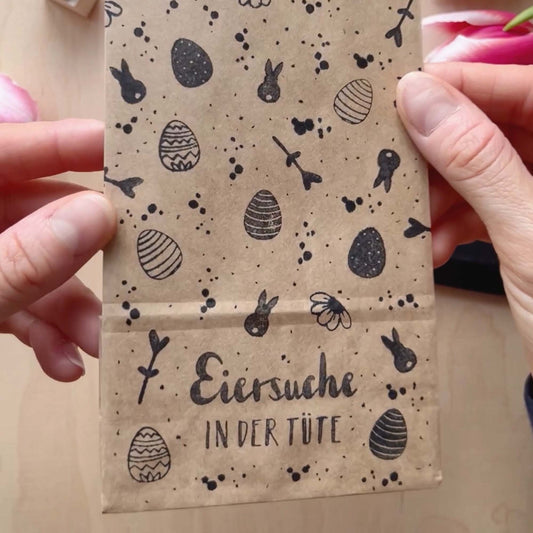 Eiersuche
IN DER TÜTE